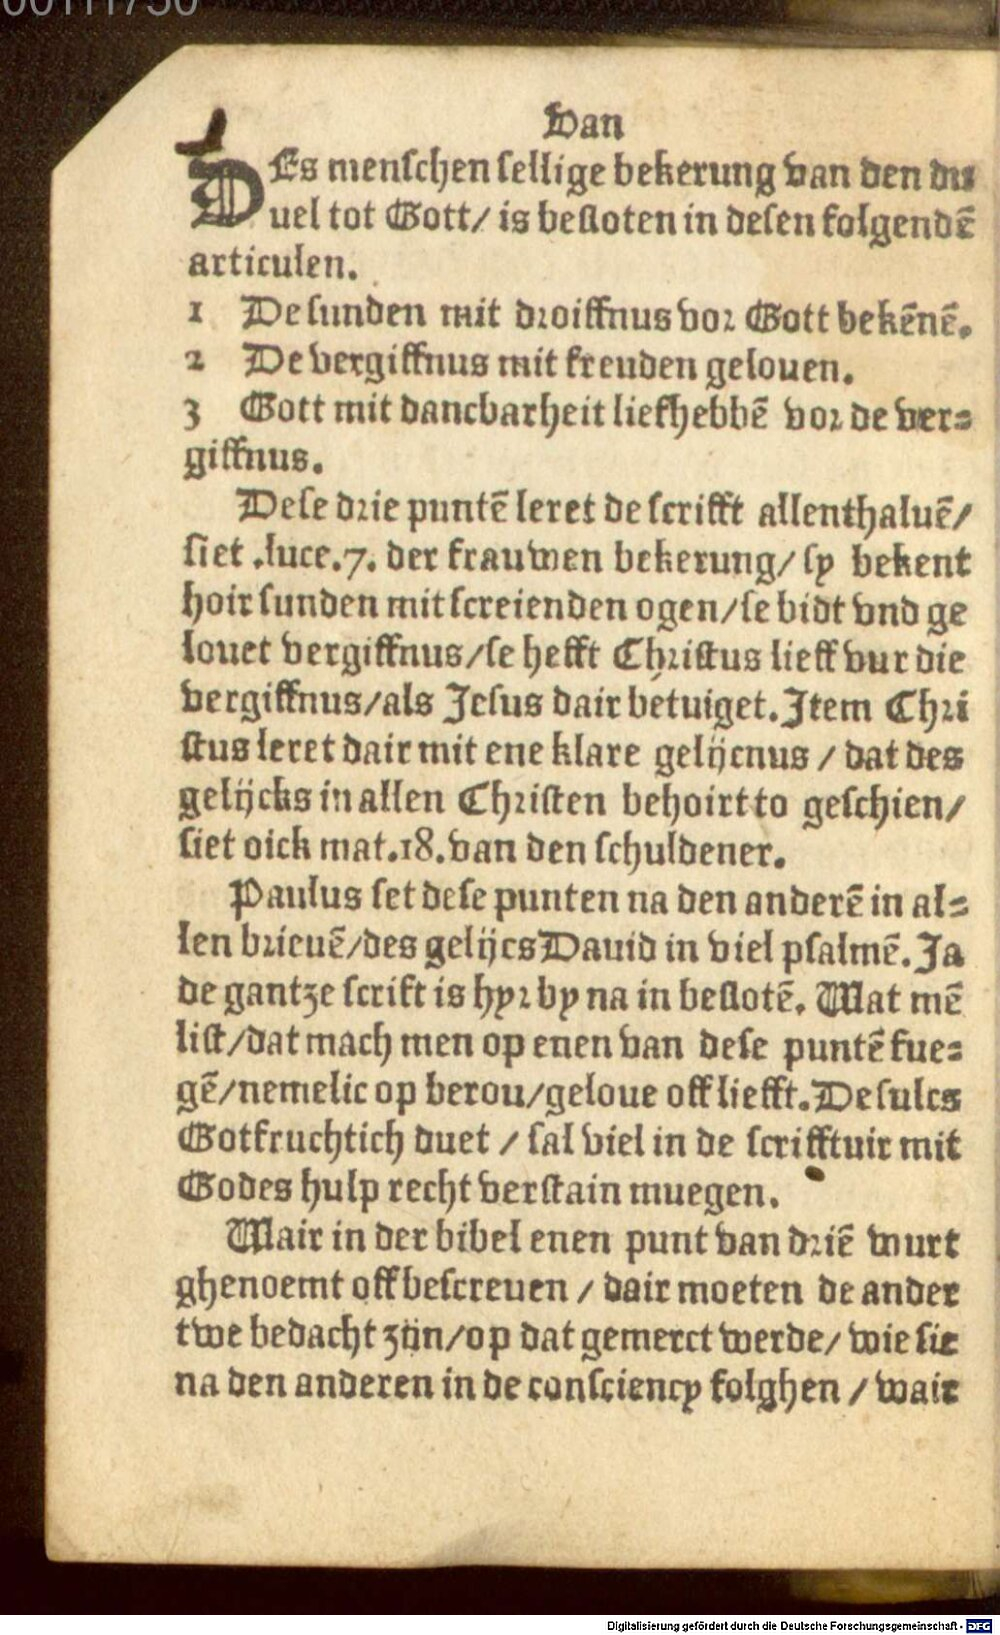 00111750
Van
DEs menschen sellige bekerung van den du
uel tot Gott/ is besloten in desen folgendē
articulen.
1 De sunden mit droiffnus vor Gott bekēnē.
2 De vergiffnus mit freuden gelouen.
3 Gott mit dancbarheit liefhebbē vor de ver=
giffnus.
Dese drie puntē leret de scrifft allenthaluē/
siet .luce.7. der frauwen bekerung/ sy bekent
hoir sunden mit screienden ogen/se bidt vnd ge
louet vergiffnus/se hefft Christus lieff vur die
vergiffnus/als Jesus dair betuiget. Item Chri
stus leret dair mit ene klare gelijcnus / dat des
gelijcks in allen Christen behoirt to geschien/
siet oick mat.18. van den schuldener.
Paulus set dese punten na den anderē in al=
len brieuē/des gelijcs Dauid in viel psalmē. Ja
de gantze scrift is hyr by na in beslotē. Wat mē
list/dat mach men op enen van dese puntē fue=
gē/nemelic op berou/geloue off liefft. De sulcs
Gotfruchtich duet / sal viel in de scrifftuir mit
Godes hulp recht verstain muegen.
Wair in der bibel enen punt van driē wurt
ghenoemt off bescreuen / dair moeten de ander
twe bedacht zijn/op dat gemerct werde/ wie sie
na den anderen in de consciency folghen / wair
Digitalisierung gefördert durch die Deutsche Forschungsgemeinschaft - DFG